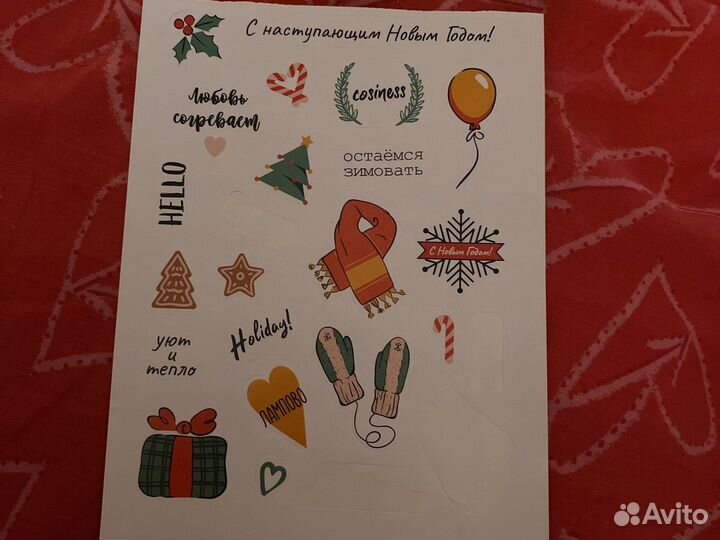 С наступающим Новым Годом!
Любовь
согревает
cosiness
остаёмся
зимовать
HELLO
С Новым Годом!
уют
и
тепло
Holiday!
ЛАМПОВО
Avito